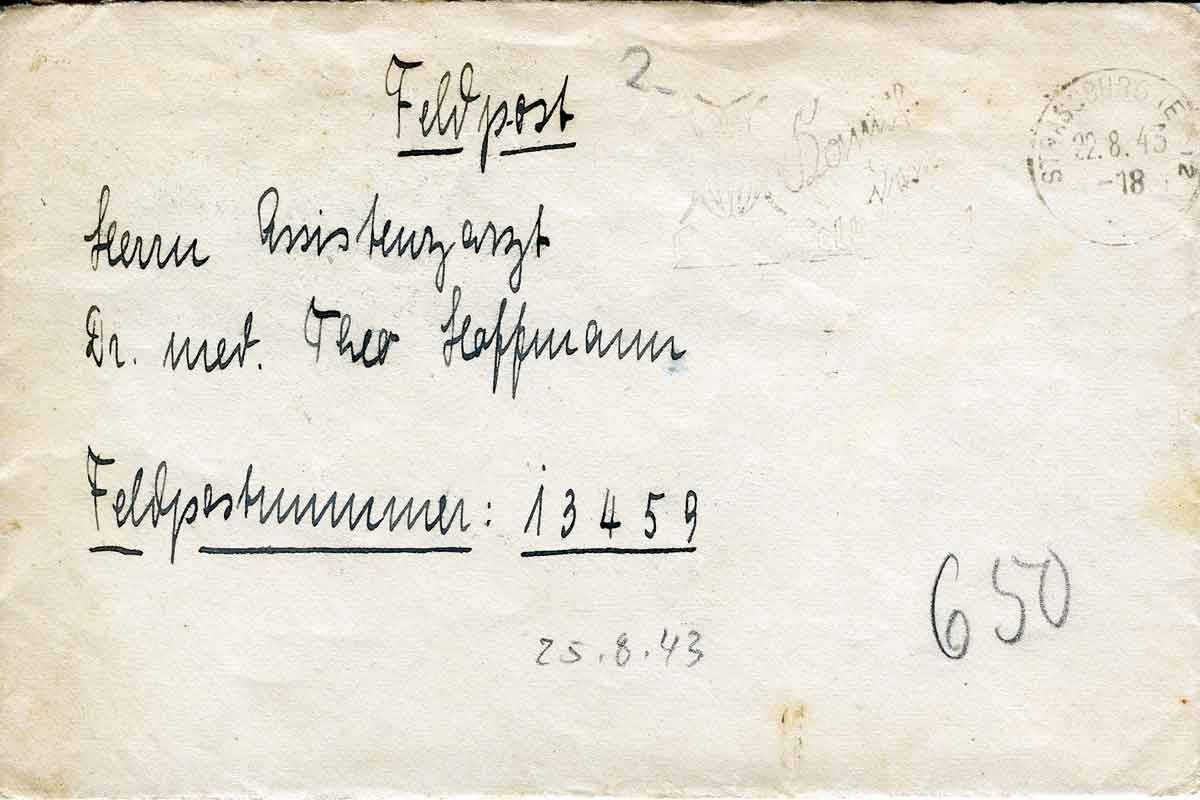 Feldpost
2
STRASSBURG (ELS) 2
22.8.43
-18
Herrn Assistenzarzt
Dr. med. Theo Hoffmann
Feldpostnummer: 13459
650
25.8.43